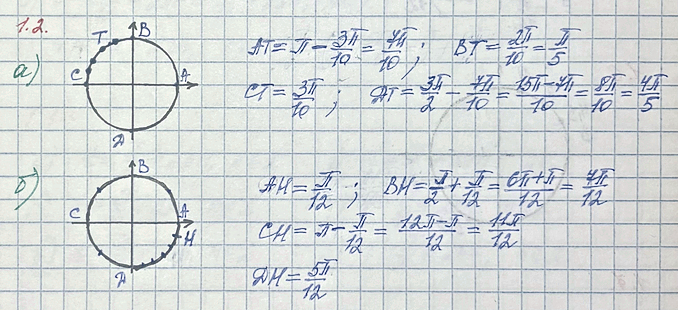 1.2.
а)
T B C A Д
AT = π - 3π/10 = 7π/10; BT = 2π/10 = π/5
CT = 3π/10; ДT = 3π/2 - 7π/10 = 15π-7π/10 = 8π/10 = 4π/5
б)
B C A H Д
AH = π/12; BH = π/2 + π/12 = 6π+π/12 = 7π/12
CH = π - π/12 = 12π-π/12 = 11π/12
ДH = 5π/12